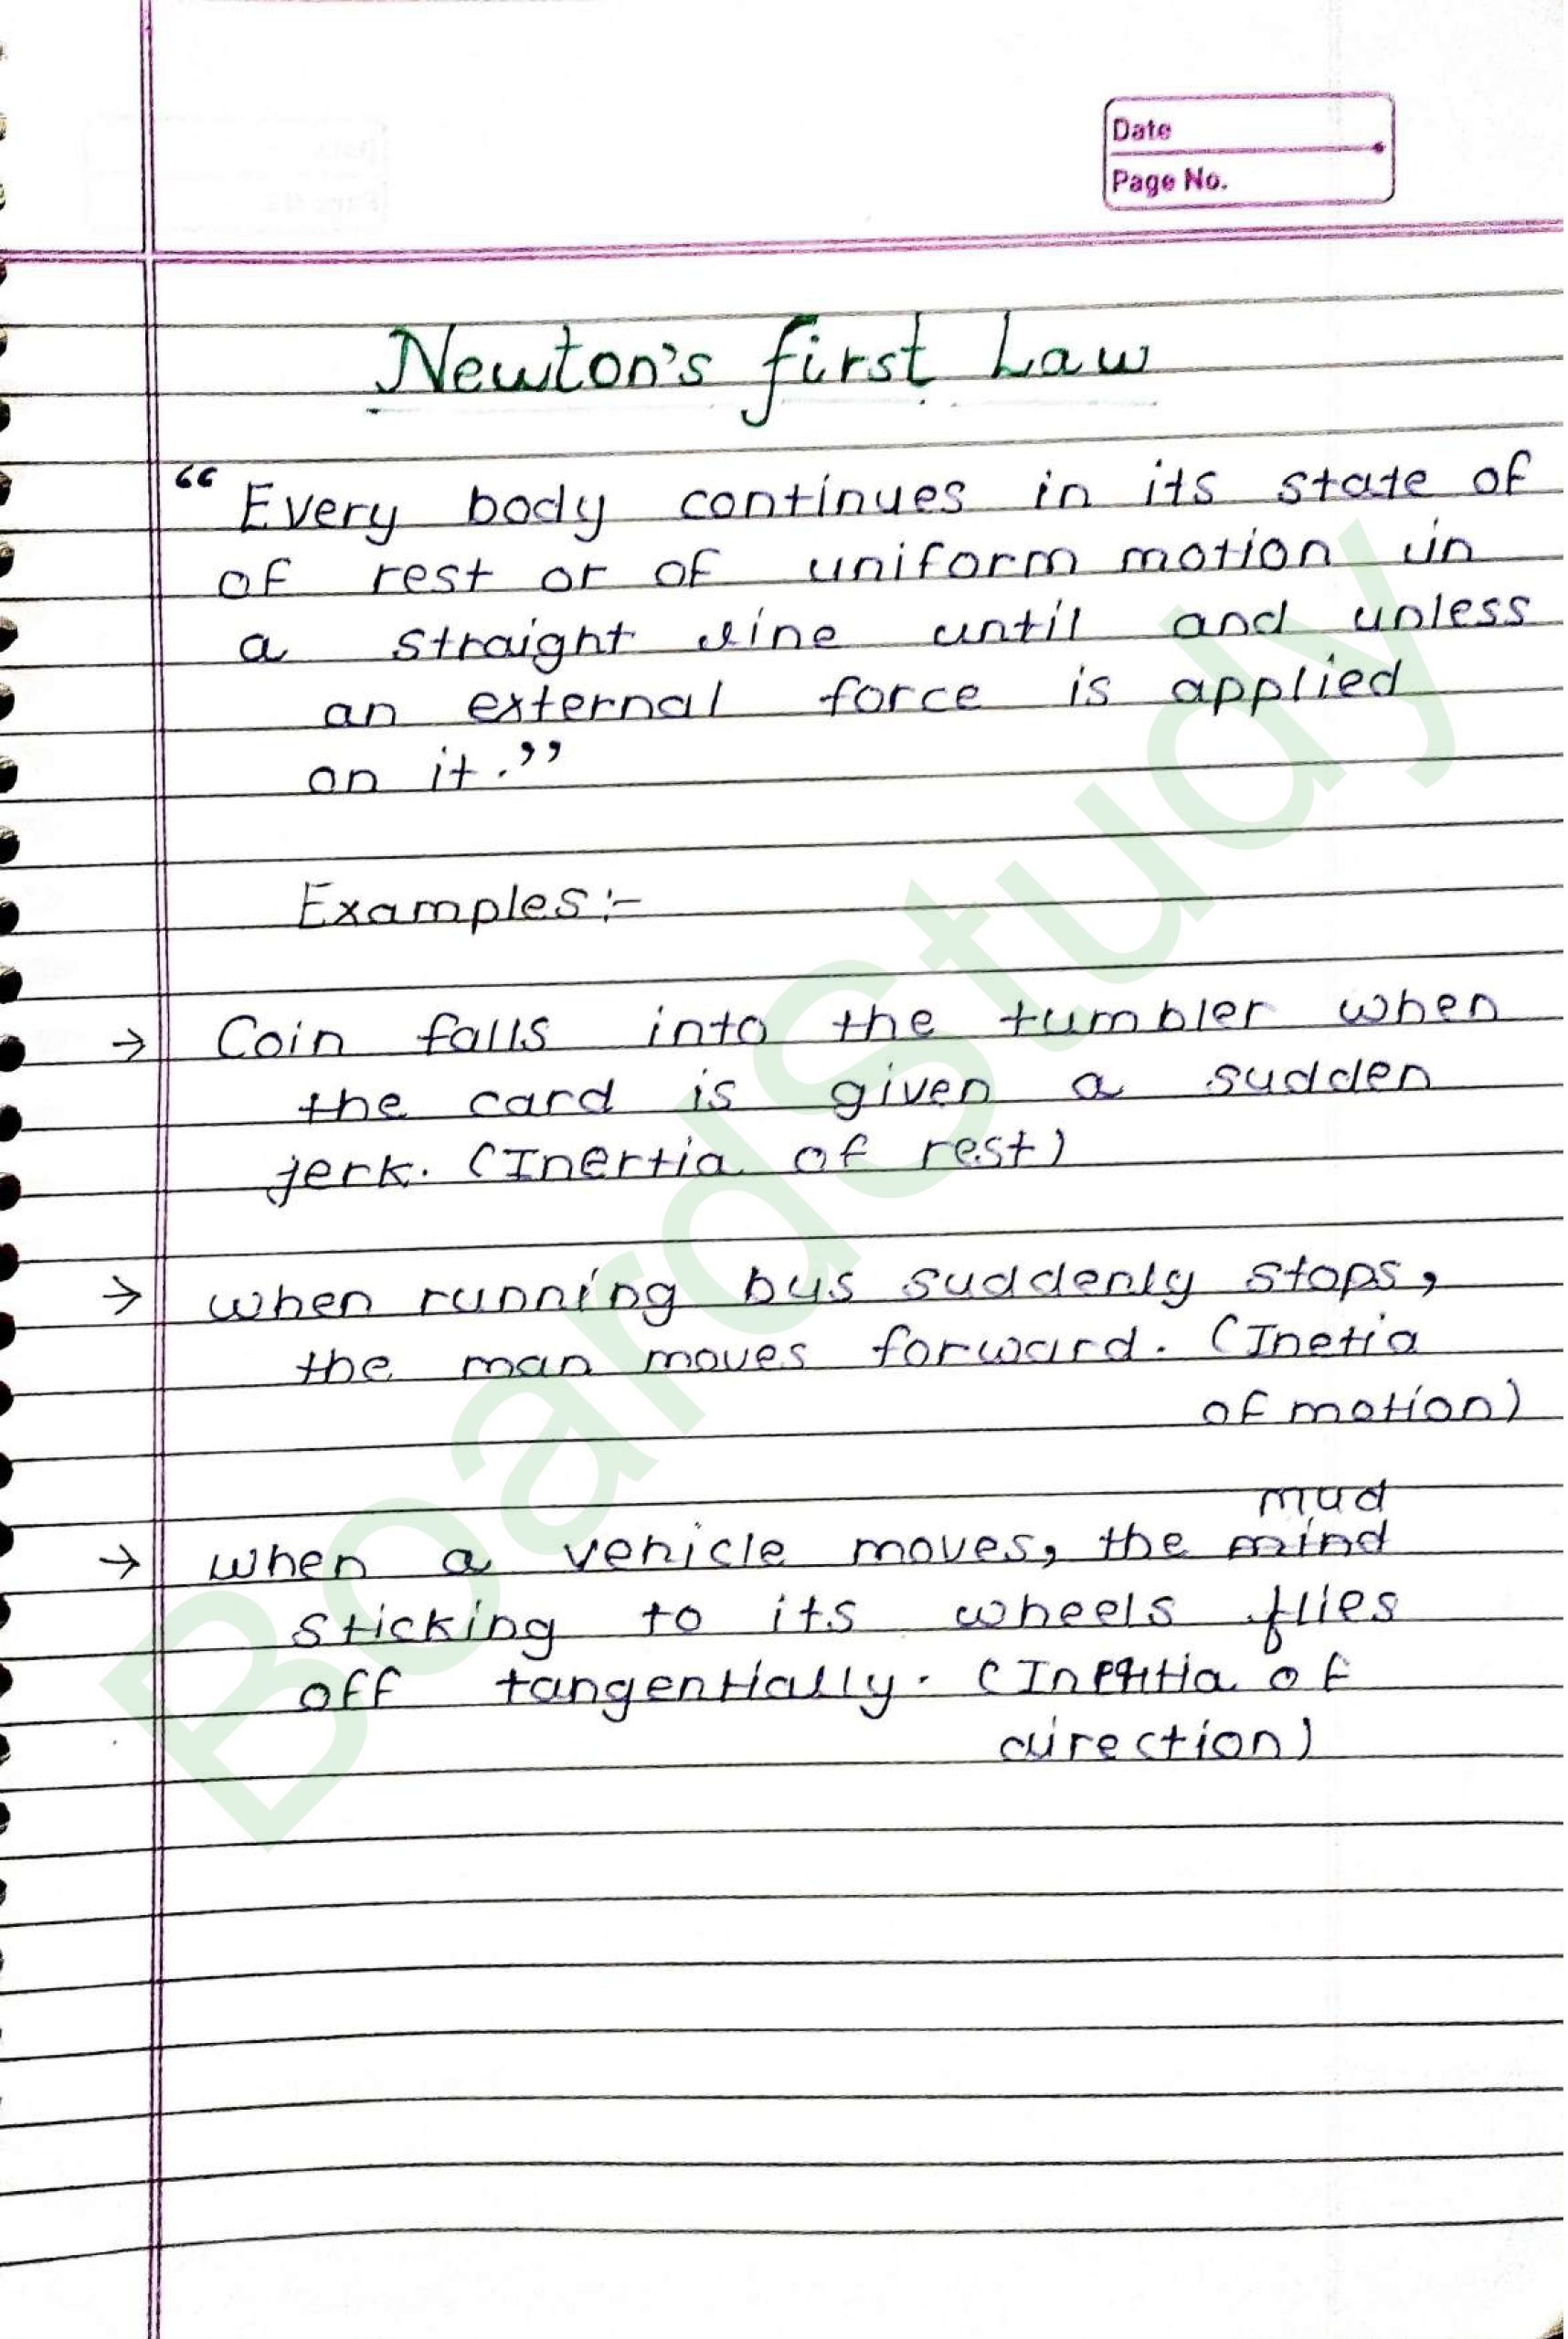 Date
Page No.
Newton's first Law
“Every body continues in its state of
of rest or of uniform motion in
a straight line until and unless
an external force is applied
on it.”
Examples:-
→ Coin falls into the tumbler when
the card is given a sudden
jerk. (Inertia of rest)
→ when running bus suddenly stops,
the man moves forward. (Inetia
of motion)
mud
→ when a vehicle moves, the mind
sticking to its wheels flies
off tangentially. (Inertia of
direction)
BoardStudy